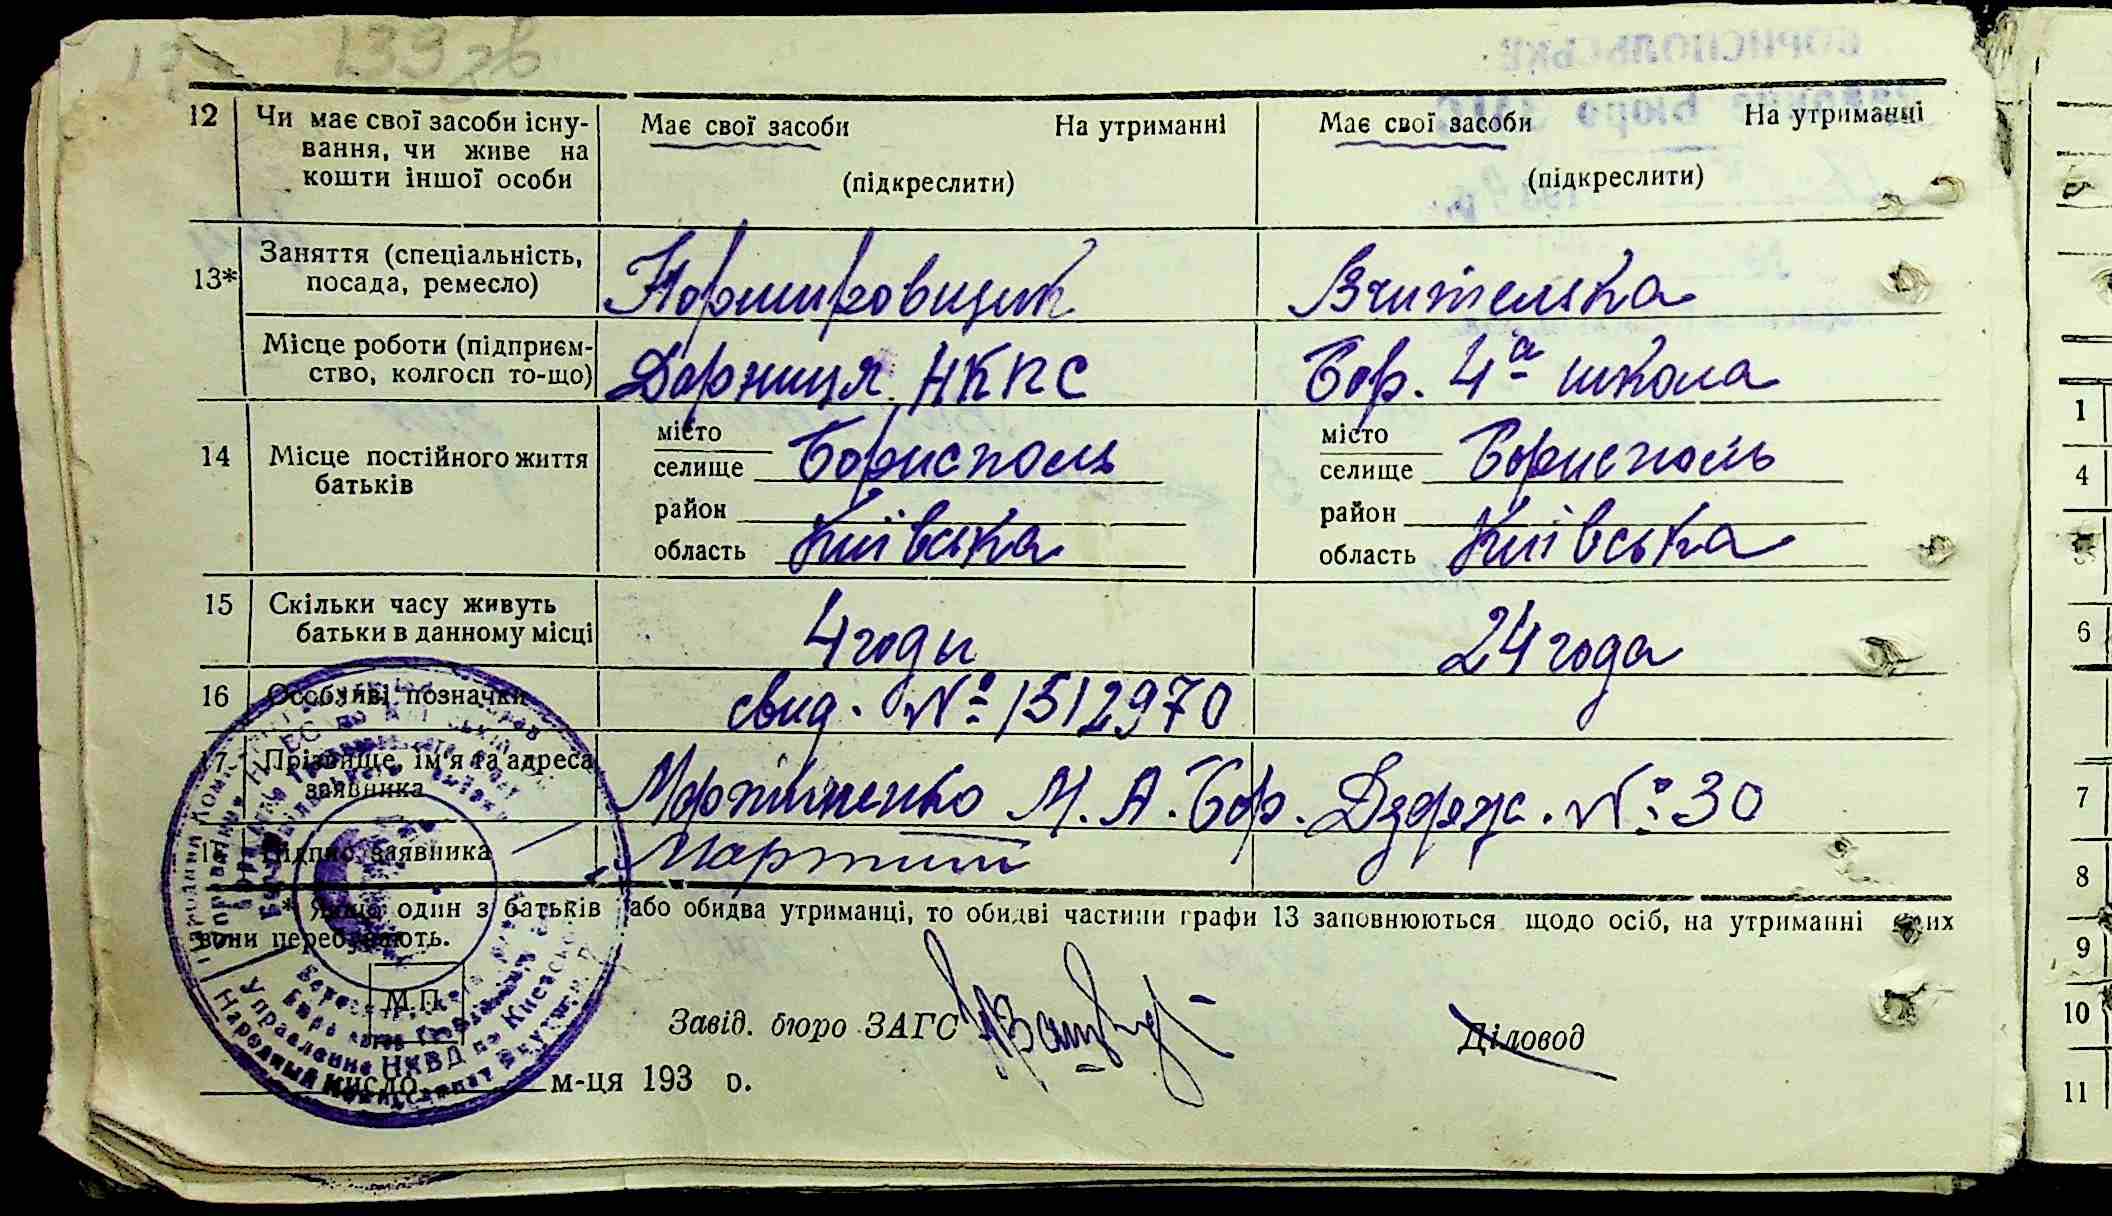 139 зв
12 Чи має свої засоби існу- Має свої засоби На утриманні Має свої засоби На утриманні
вання, чи живе на
кошти іншої особи (підкреслити) (підкреслити)
13* Заняття (спеціальність, Нормировщик Вчителька
посада, ремесло)
Місце роботи (підприєм- Дарниця НКПС Бор. 4а школа
ство, колгосп то-що)
14 Місце постійного життя місто Борисполь місто Борисполь
батьків селище селище
район район
область Київська область Київська
15 Скільки часу живуть 4 годы 24 года
батьки в данному місці
16 Особливі позначки свид. № 1512970
17 Прізвище, ім'я та адреса Мартиненко М. А. Бор. Дзержа. № 30
заявника
Підпис заявника Мартин
* Якщо один з батьків або обидва утриманці, то обидві частини графи 13 заповнюються щодо осіб, на утриманні яких
вони перебувають.
М.П.
Завід. бюро ЗАГС Діловод
число м-ця 193 р.
Управление НКВД по Киевской
Народный Комиссариат Внутрен.
БОРИСПОЛЬСЬКЕ
Бюро ЗАГС
1
4
5
6
7
8
9
10
11